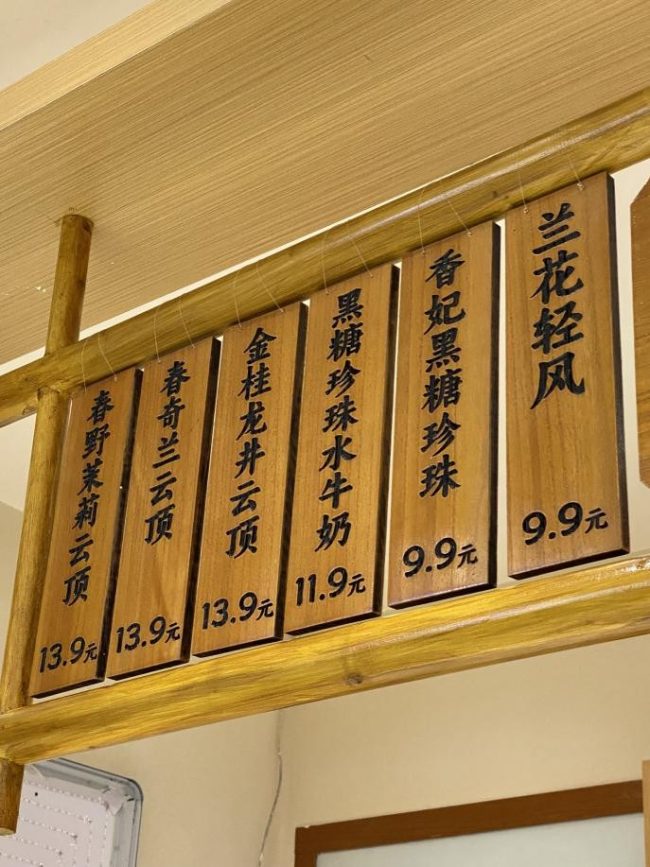 春野茉莉云顶
13.9元
春奇兰云顶
13.9元
金桂龙井云顶
13.9元
黑糖珍珠水牛奶
11.9元
香妃黑糖珍珠
9.9元
兰花轻风
9.9元